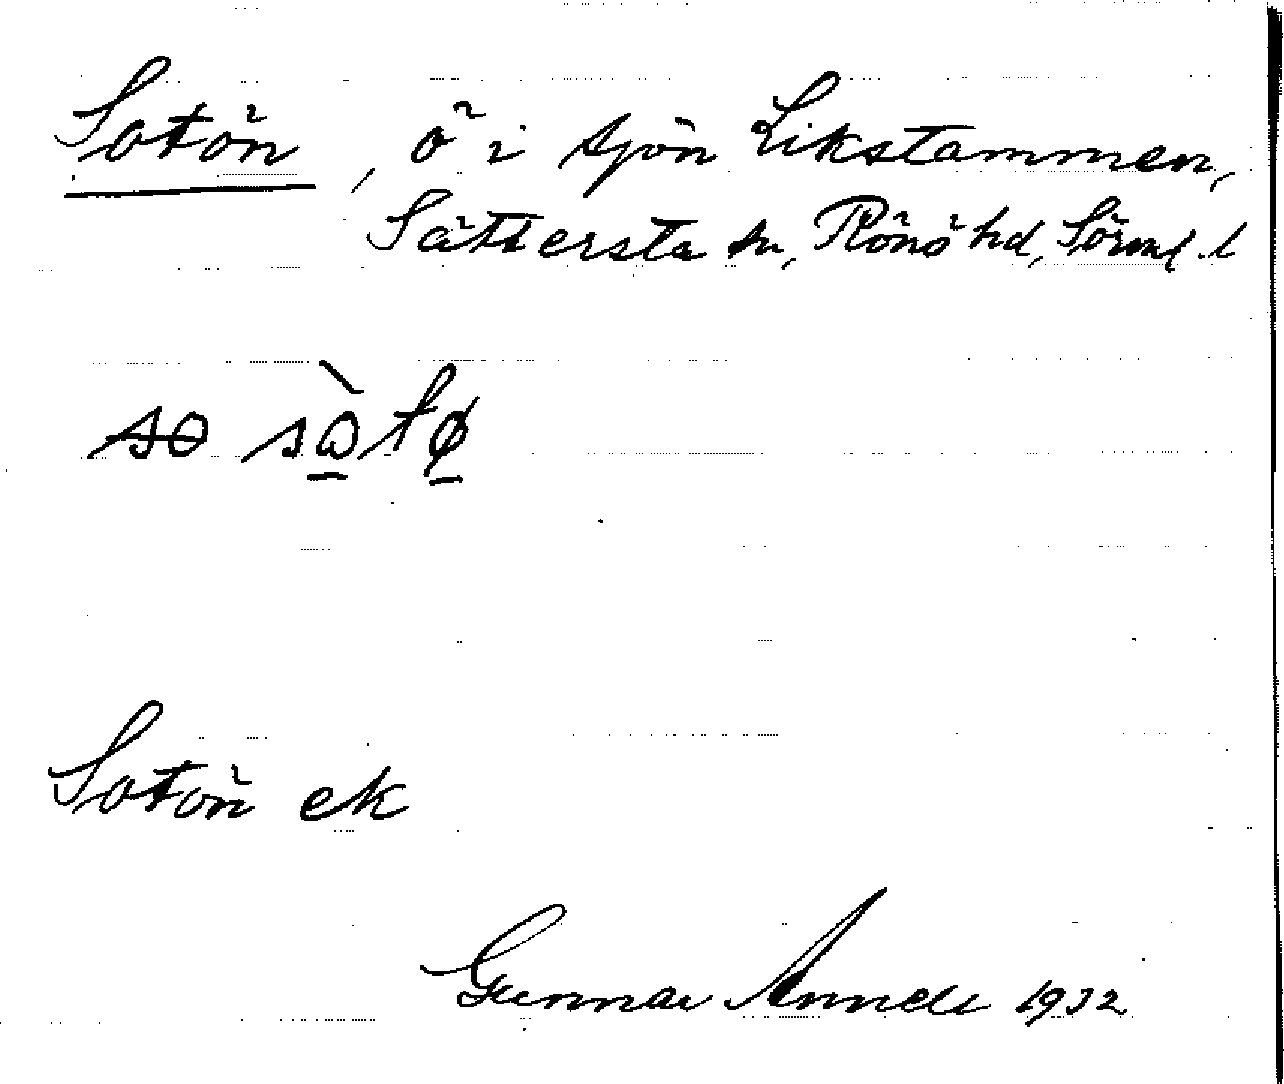 Sotön, ö i sjön Likstammen,
Sättersta sn, Rönö hd, Sörml. l
sωtø
Sotön ek
Gunnar Annell 1932